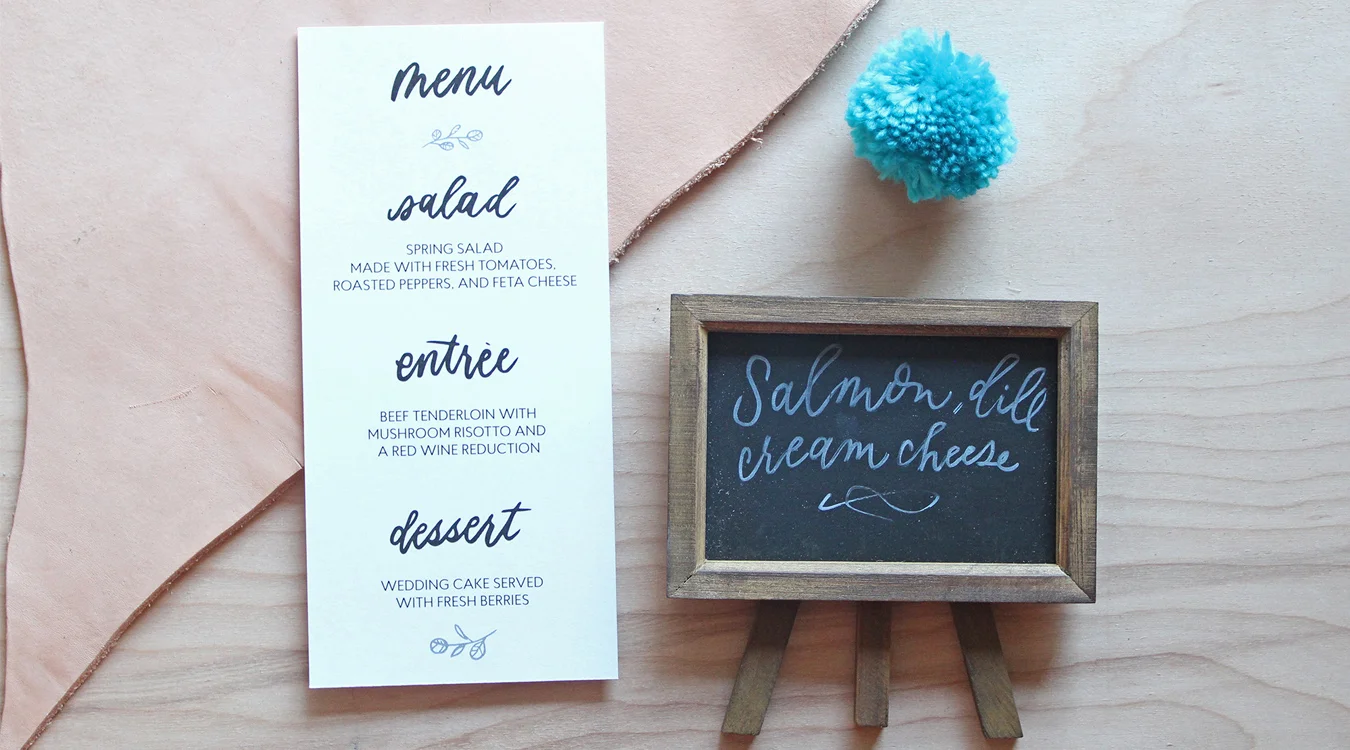 menu
salad
SPRING SALAD
MADE WITH FRESH TOMATOES,
ROASTED PEPPERS, AND FETA CHEESE
entrèe
BEEF TENDERLOIN WITH
MUSHROOM RISOTTO AND
A RED WINE REDUCTION
dessert
WEDDING CAKE SERVED
WITH FRESH BERRIES
Salmon, dill
cream cheese